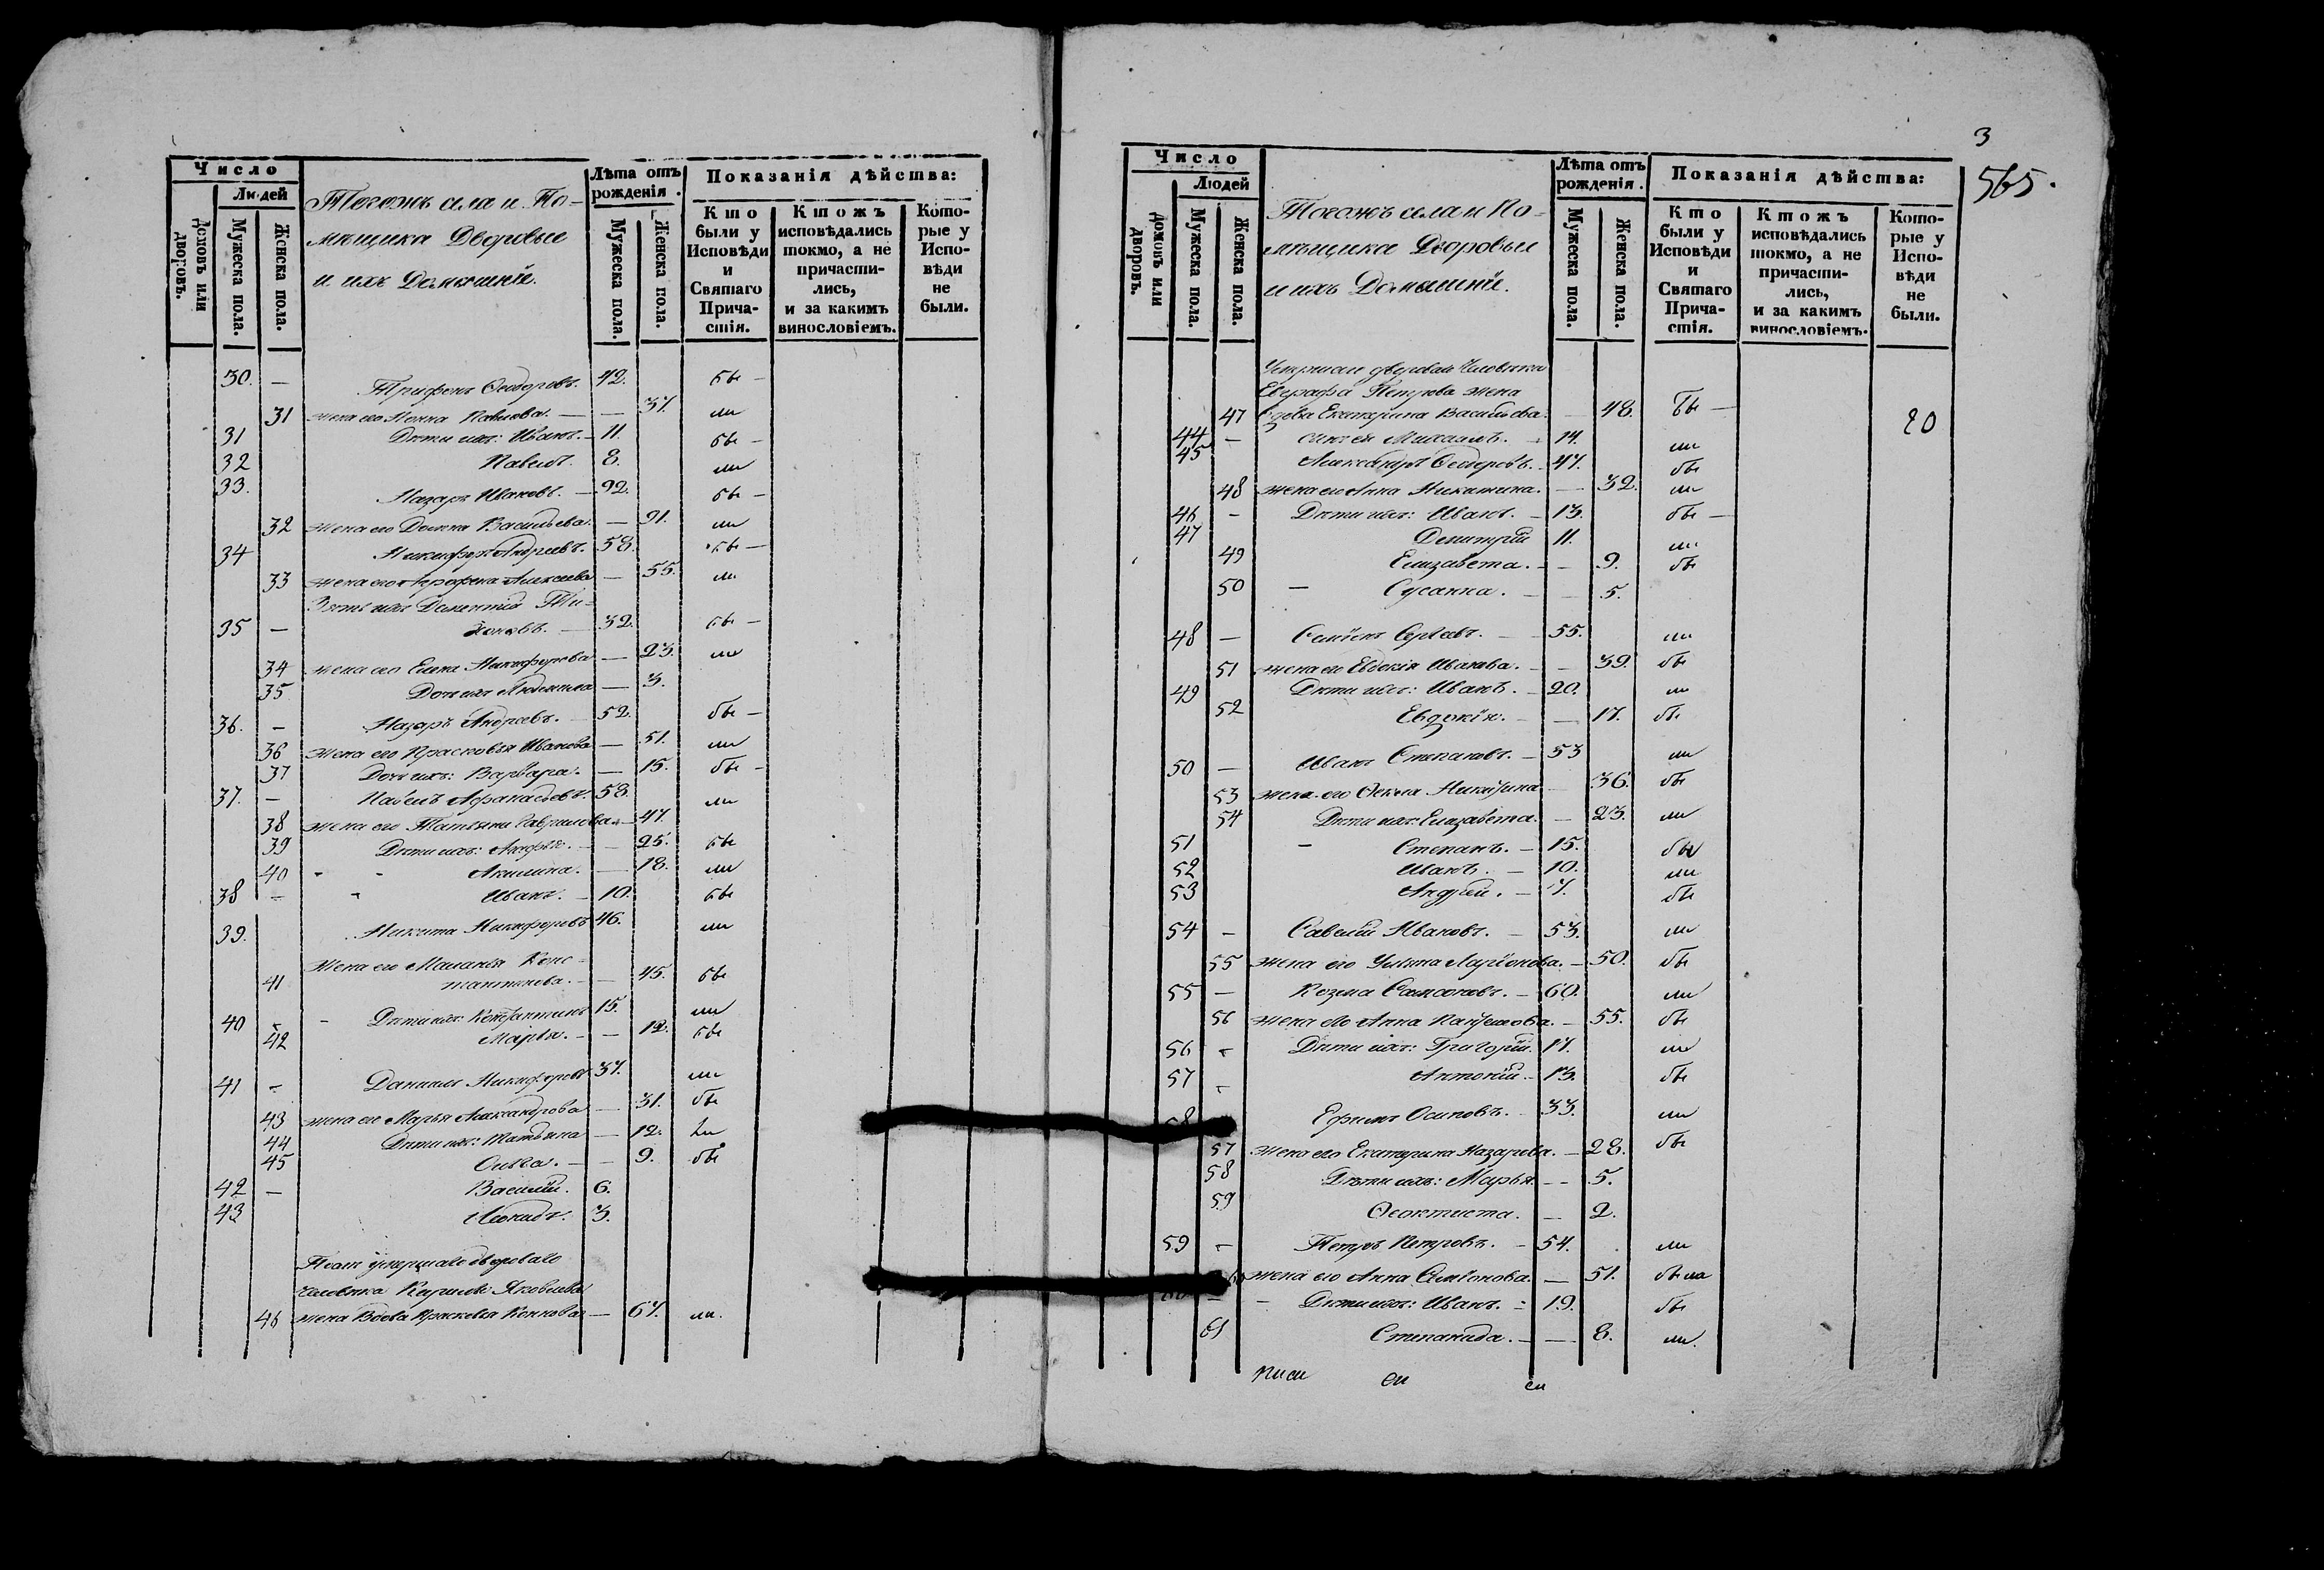 Число
Людей
домовъ или дворовъ.
Мужеска пола.
Женска пола.
Тогожъ села и По-
мѣщика Дворовые
и ихъ Домашнiе.
Лѣта отъ рожденiя.
Мужеска пола.
Женска пола.
Показанiя дѣйства:
Кто были у Исповѣди и Святаго Прича- стiя.
Ктожъ исповѣдались токмо, а не причасти- лись, и за какимъ винословiемъ.
Кото- рые у Испо- вѣди не были.
30. — Трифонъ Ѳеодоровъ. 42. бы —
31 жена его Павлова. — — 37. ли
31 Дѣти ихъ: Иванъ. — 11. бы —
32 Павелъ. 8. ли
33. Назаръ Ивановъ. — 92. бы —
32 жена его Домна Васильева. — 91. ли
34 Никифоръ Андреевъ. 58. бы —
33 жена его Агрофена Алексеева — 55. ли
Зять ихъ Дометiй Ти-
35 — хоновъ. — 32. бы —
34 жена его Елена Никифорова — 23. ли
35 Дочь ихъ — 3.
36. — Назаръ Андреевъ. 52. бы —
36 жена его Прасковья Иванова — 51. ли
37 Дочь ихъ: Варвара. — 15. бы —
37. — Павелъ Афанасьевъ. 58. ли
38 жена его Татьяна Гаврилова. — 47.
39 Дѣти ихъ: — 25. бы
40 Акилина. — 18. ли
38 — Иванъ. — 10. бы
39. Никита Никифоровъ 46. ли
жена его Маланья Конс-
41 тантинова. — — 45. бы
40 - Дѣти ихъ: Константинъ 15. ли
42 Марья. — — 12. бы
41 - Данiилъ Никифоровъ 37. ли
43 жена его Марья Александрова — 31. бы
44 Дѣти ихъ: Татьяна — 12. ли
45 Ольга. — — 9. бы
42 — Василiй. 6.
43 Леонидъ. 3.
умершаго двороваго
человѣка Яковлева
46 жена Вдова Прасковья — 67. ли.
3
565.
Число
Людей
домовъ или дворовъ.
Мужеска пола.
Женска пола.
Тогожъ села и По-
мѣщика Дворовые
и ихъ Домашнiе.
Лѣта отъ рожденiя.
Мужеска пола.
Женска пола.
Показанiя дѣйства:
Кто были у Исповѣди и Святаго Прича- стiя.
Ктожъ исповѣдались токмо, а не причасти- лись, и за какимъ винословiемъ.
Кото- рые у Испо- вѣди не были.
двороваго человѣка
Евграфа Петрова жена
47 вдова Екатерина Васильева. — 48. бы —
20
44 — сынъ ея Михаилъ. — 14. ли
45 Александръ Ѳеодоровъ. 47. бы
48 жена его Анна Никитина. — 32. ли
46 - Дѣти ихъ: Иванъ. — 13. бы —
47 Димитрiй 11. ли
49 Елизавета. — — 9. бы
50 — Сусанна. — — 5.
48 — Семiонъ Сергѣевъ. — 55. ли
51 жена его Евдокiя Иванова. — — 39. бы
49 Дѣти ихъ: Иванъ. — 20. ли
52 Евдокiя. — — 17. бы
50 — Иванъ Степановъ. — 53 ли
53 жена его Ѳекла Никитина — 36. бы
54 Дѣти ихъ: Елизавета. — 23. ли
51 - Степанъ. — 15. бы
52 Иванъ. — 10. ли
53 Андрей. — 7. бы
54 — Савелiй Ивановъ. — 53. ли
55 жена его Ульяна Ларiонова. — 50. бы
55 — Козма Самсоновъ. — 60. ли
56 жена его Анна — 55. бы
56 - Дѣти ихъ: Григорiй. 17. ли
57 - Антонiй. — 13. бы
58 Ефимъ Осиповъ. 33. ли
57 жена его Екатерина Назарова. — 28. бы
58 Дѣти ихъ: Марья. — — 5.
59 Ѳеоктиста. — 2.
59 - Петръ Петровъ. — 54. ли
жена его Анна Семiонова. — 51. были
— Дѣти ихъ: Иванъ. - 19. бы
61 Степанида. — — 8. ли.